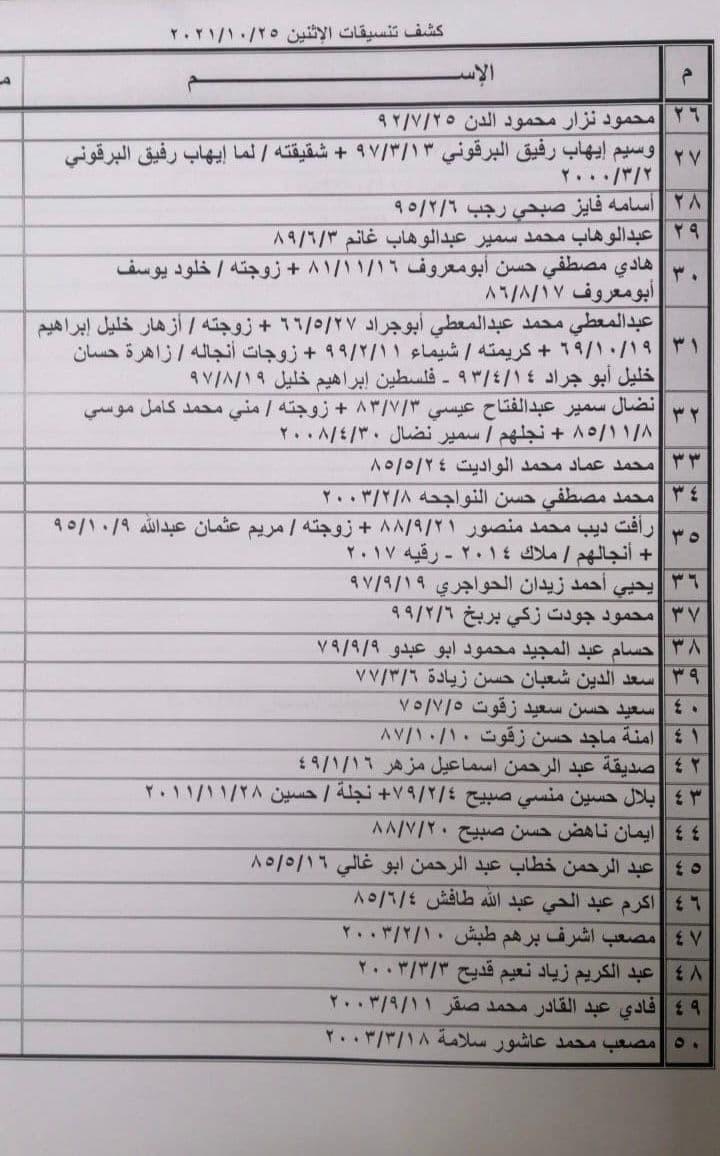 كشف تنسيقات الإثنين ٢٠٢١/١٠/٢٥
م الإســـــــم
٢٦ محمود نزار محمود الدن ٩٢/٧/٢٥
٢٧ وسيم إيهاب رفيق البرقوني ٩٧/٣/١٣ + شقيقته / لما إيهاب رفيق البرقوني
٢٠٠٠/٣/٢
٢٨ أسامه فايز صبحي رجب ٩٥/٢/٦
٢٩ عبدالوهاب محمد سمير عبدالوهاب غانم ٨٩/٦/٣
٣٠ هادي مصطفي حسن أبومعروف ٨١/١١/١٦ + زوجته / خلود يوسف
أبومعروف ٨٦/٨/١٧
٣١ عبدالمعطي محمد عبدالمعطي أبوجراد ٦٦/٥/٢٧ + زوجته / أزهار خليل إبراهيم
٦٩/١٠/١٩ + كريمته / شيماء ٩٩/٢/١١ + زوجات أنجاله / زاهرة حسان
خليل أبو جراد ٩٣/٤/١٤ - فلسطين إبراهيم خليل ٩٧/٨/١٩
٣٢ نضال سمير عبدالفتاح عيسي ٨٣/٧/٣ + زوجته / مني محمد كامل موسي
٨٥/١١/٨ + نجلهم / سمير نضال ٢٠٠٨/٤/٣٠
٣٣ محمد عماد محمد الواديت ٨٥/٥/٢٤
٣٤ محمد مصطفي حسن النواجحه ٢٠٠٣/٢/٨
٣٥ رأفت ديب محمد منصور ٨٨/٩/٢١ + زوجته / مريم عثمان عبدالله ٩٥/١٠/٩
+ أنجالهم / ملاك ٢٠١٤ - رقيه ٢٠١٧
٣٦ يحيي أحمد زيدان الحواجري ٩٧/٩/١٩
٣٧ محمود جودت زكي بربخ ٩٩/٢/٦
٣٨ حسام عبد المجيد محمود ابو عبدو ٧٩/٩/٩
٣٩ سعد الدين شعبان حسن زيادة ٧٧/٣/٦
٤٠ سعيد حسن سعيد زقوت ٧٥/٧/٥
٤١ امنة ماجد حسن زقوت ٨٧/١٠/١٠
٤٢ صديقة عبد الرحمن اسماعيل مزهر ٤٩/١/١٦
٤٣ بلال حسين منسي صبيح ٧٩/٢/٤+ نجلة / حسين ٢٠١١/١١/٢٨
٤٤ ايمان ناهض حسن صبيح ٨٨/٧/٢٠
٤٥ عبد الرحمن خطاب عبد الرحمن ابو غالي ٨٥/٥/١٦
٤٦ اكرم عبد الحي عبد الله طافش ٨٥/٦/٤
٤٧ مصعب اشرف برهم طبش ٢٠٠٣/٢/١٠
٤٨ عبد الكريم زياد نعيم قديح ٢٠٠٣/٣/٣
٤٩ فادي عبد القادر محمد صقر ٢٠٠٣/٩/١١
٥٠ مصعب محمد عاشور سلامة ٢٠٠٣/٣/١٨